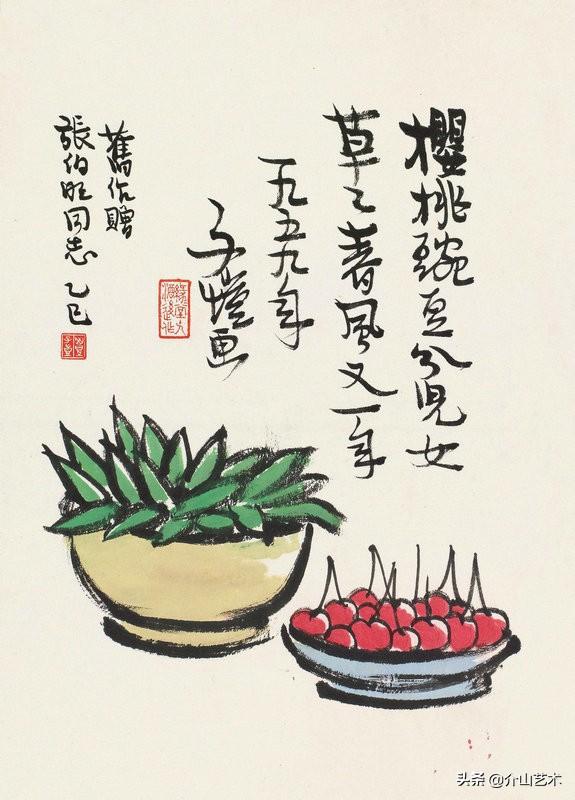 櫻桃豌豆分兒女
草〻春風又一年
一九五九年
子愷画
舊作贈
張伯旺同志 乙巳
头条 @介山艺术